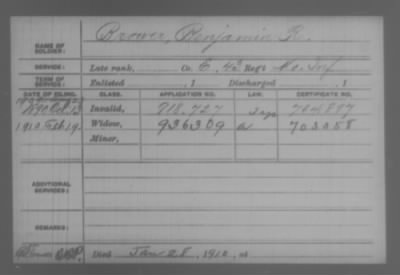 NAME OF SOLDIER: Brower, Benjamin R.
SERVICE: Late rank, Co. E, 42 Reg't Mo. Inf
TERM OF SERVICE: Enlisted , 1 Discharged , 1
DATE OF FILING. CLASS. APPLICATION NO. LAW. CERTIFICATE NO.
1890 Oct 13 Invalid, 918,727
1910 Feb 19 Widow, 936309 a 703058
Minor,
ADDITIONAL SERVICES:
REMARKS:
Died Jan 28, 1910, at